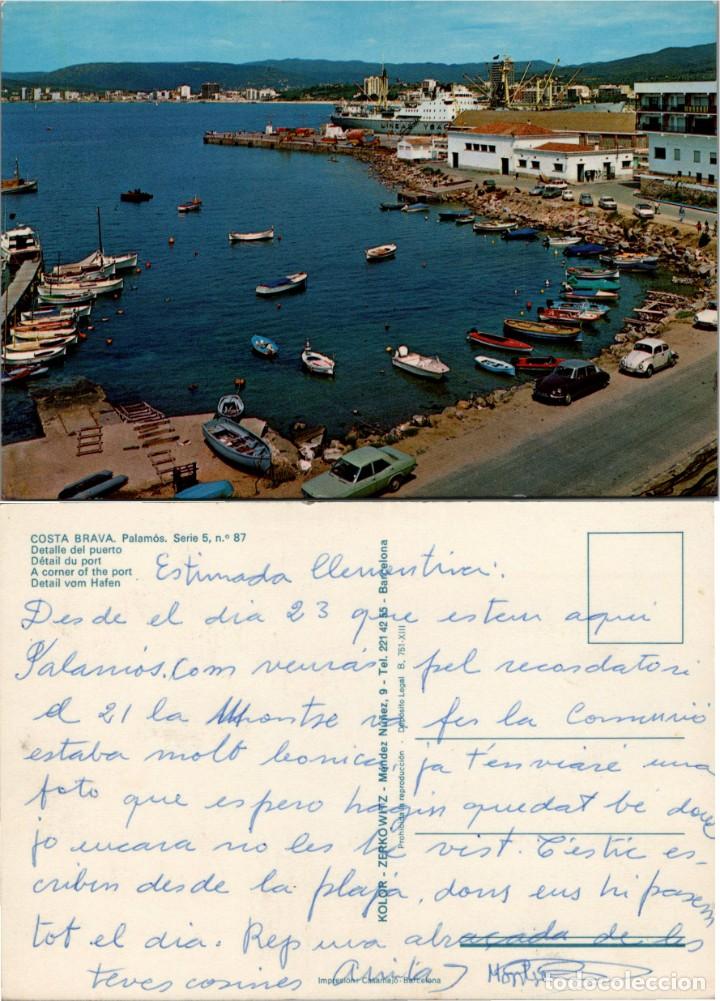 LINEAS
COSTA BRAVA. Palamós. Serie 5, n.º 87
Detalle del puerto
Détail du port
A corner of the port
Detail vom Hafen
Estimada Clementina:
Desde el dia 23 que estem aqui
Palamós. Com veuràs pel recordatori
el 21 la Montse va fer la Comunió
estaba molt bonica, ja t'enviaré una
foto que espero hagin quedat bé donç
jo encara no les he vist. T'estic es-
cribin desde la plaja, dons ens hi pasem
tot el dia. Rep una abraçada de les
teves cosines
KOLOR - ZERKOWITZ - Méndez Núñez, 9 - Tel. 221 42 55 - Barcelona
Prohibida la reproducción - Depósito Legal B. 751-XIII
Impresión: Casamajó-Barcelona
todocoleccion